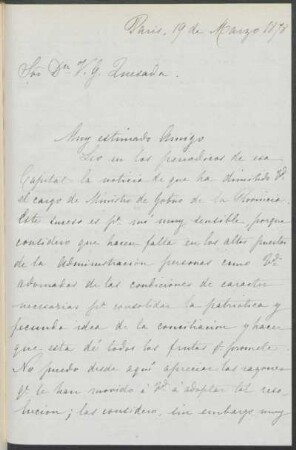 Paris, 19 de Marzo 1878
Sor Dn V. G. Quesada.
Muy estimado Amigo
Leo en los periodicos de esa
Capital la noticia de que ha dimitido Vd
el cargo de Ministro de Gobno de la Provincia.
Este suceso es pa mi muy sensible, porque
considero que hacen falta en los altos puestos
de la Administracion personas como Vd
adornadas de las condiciones de caracter
necesarias pa consolidar la patriotica y
fecunda idea de la conciliacion y hacer
que esta dé todos los frutos q promete.
No puedo desde aquí apreciar las razones
q le han movido á Vd á adoptar tal reso-
lucion; las considero, sin embargo muy